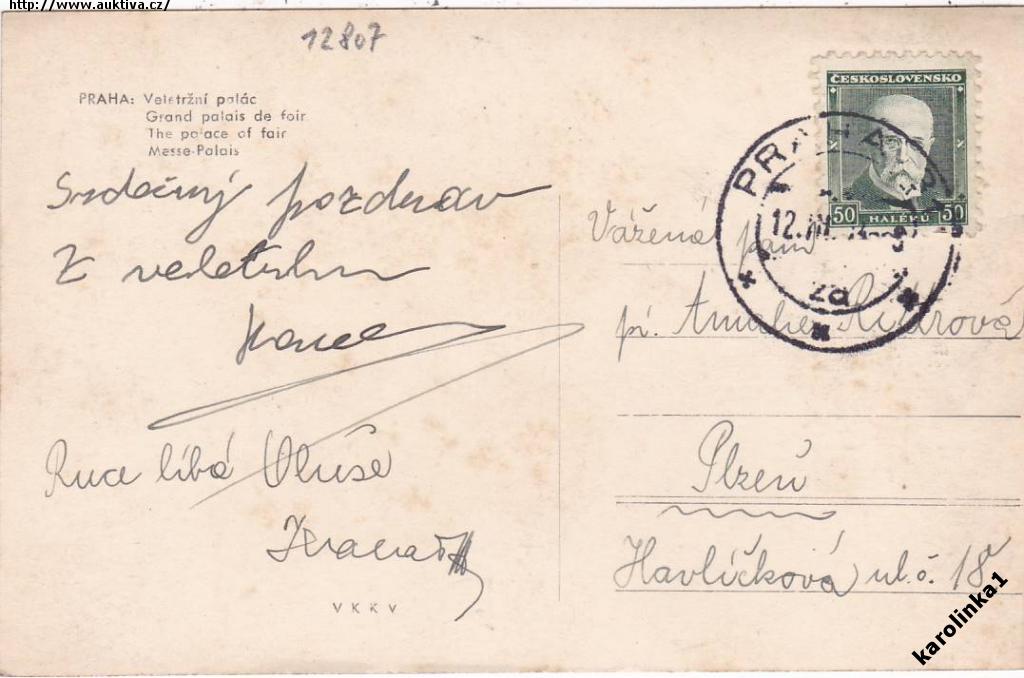 http://www.auktiva.cz/
12807
PRAHA: Veletržní palác
Grand palais de foir
The palace of fair
Messe-Palais
ČESKOSLOVENSKO
50 HALÉŘŮ 50
PRAHA
12.
Srdečný pozdrav
Z veletrhu
Ruce líbá Oluše
VKKV
Vážená paní
pí.
Plzeň
Havlíčková ul. č. 18
karolinka1